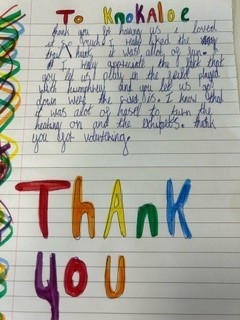 To Knokaloe
Thank you for having us I loved
it so much I really liked the
hunt, it was alot of fun.
I realy appreciate the fact that
you let us play in the field played
with humphrey and you let us go
down with the I know that
it was alot of hasel to turn the
heating on and the exhibits. thank
you got volunteering.
ThAnK
you